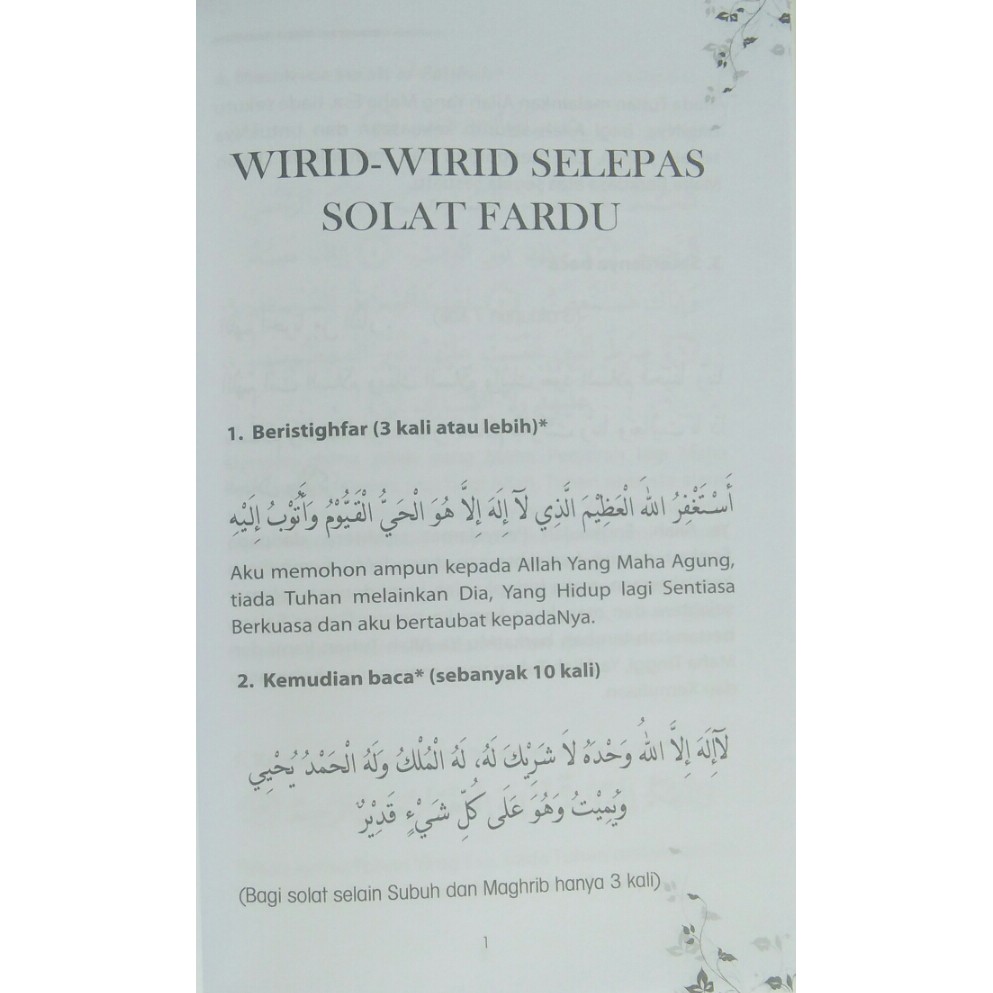 WIRID-WIRID SELEPAS
SOLAT FARDU
1. Beristighfar (3 kali atau lebih)*
أَسْتَغْفِرُ اللهَ الْعَظِيْمَ الَّذِي لَآ إِلَهَ إِلاَّ هُوَ الْحَيُّ الْقَيُّوْمُ وَأَتُوْبُ إِلَيْهِ
Aku memohon ampun kepada Allah Yang Maha Agung,
tiada Tuhan melainkan Dia, Yang Hidup lagi Sentiasa
Berkuasa dan aku bertaubat kepadaNya.
2. Kemudian baca* (sebanyak 10 kali)
لَآإِلَهَ إِلاَّ اللهُ وَحْدَهُ لاَ شَرِيْكَ لَهُ، لَهُ الْمُلْكُ وَلَهُ الْحَمْدُ يُحْيِي
وَيُمِيْتُ وَهُوَ عَلَى كُلِّ شَيْءٍ قَدِيْرٌ
(Bagi solat selain Subuh dan Maghrib hanya 3 kali)
1